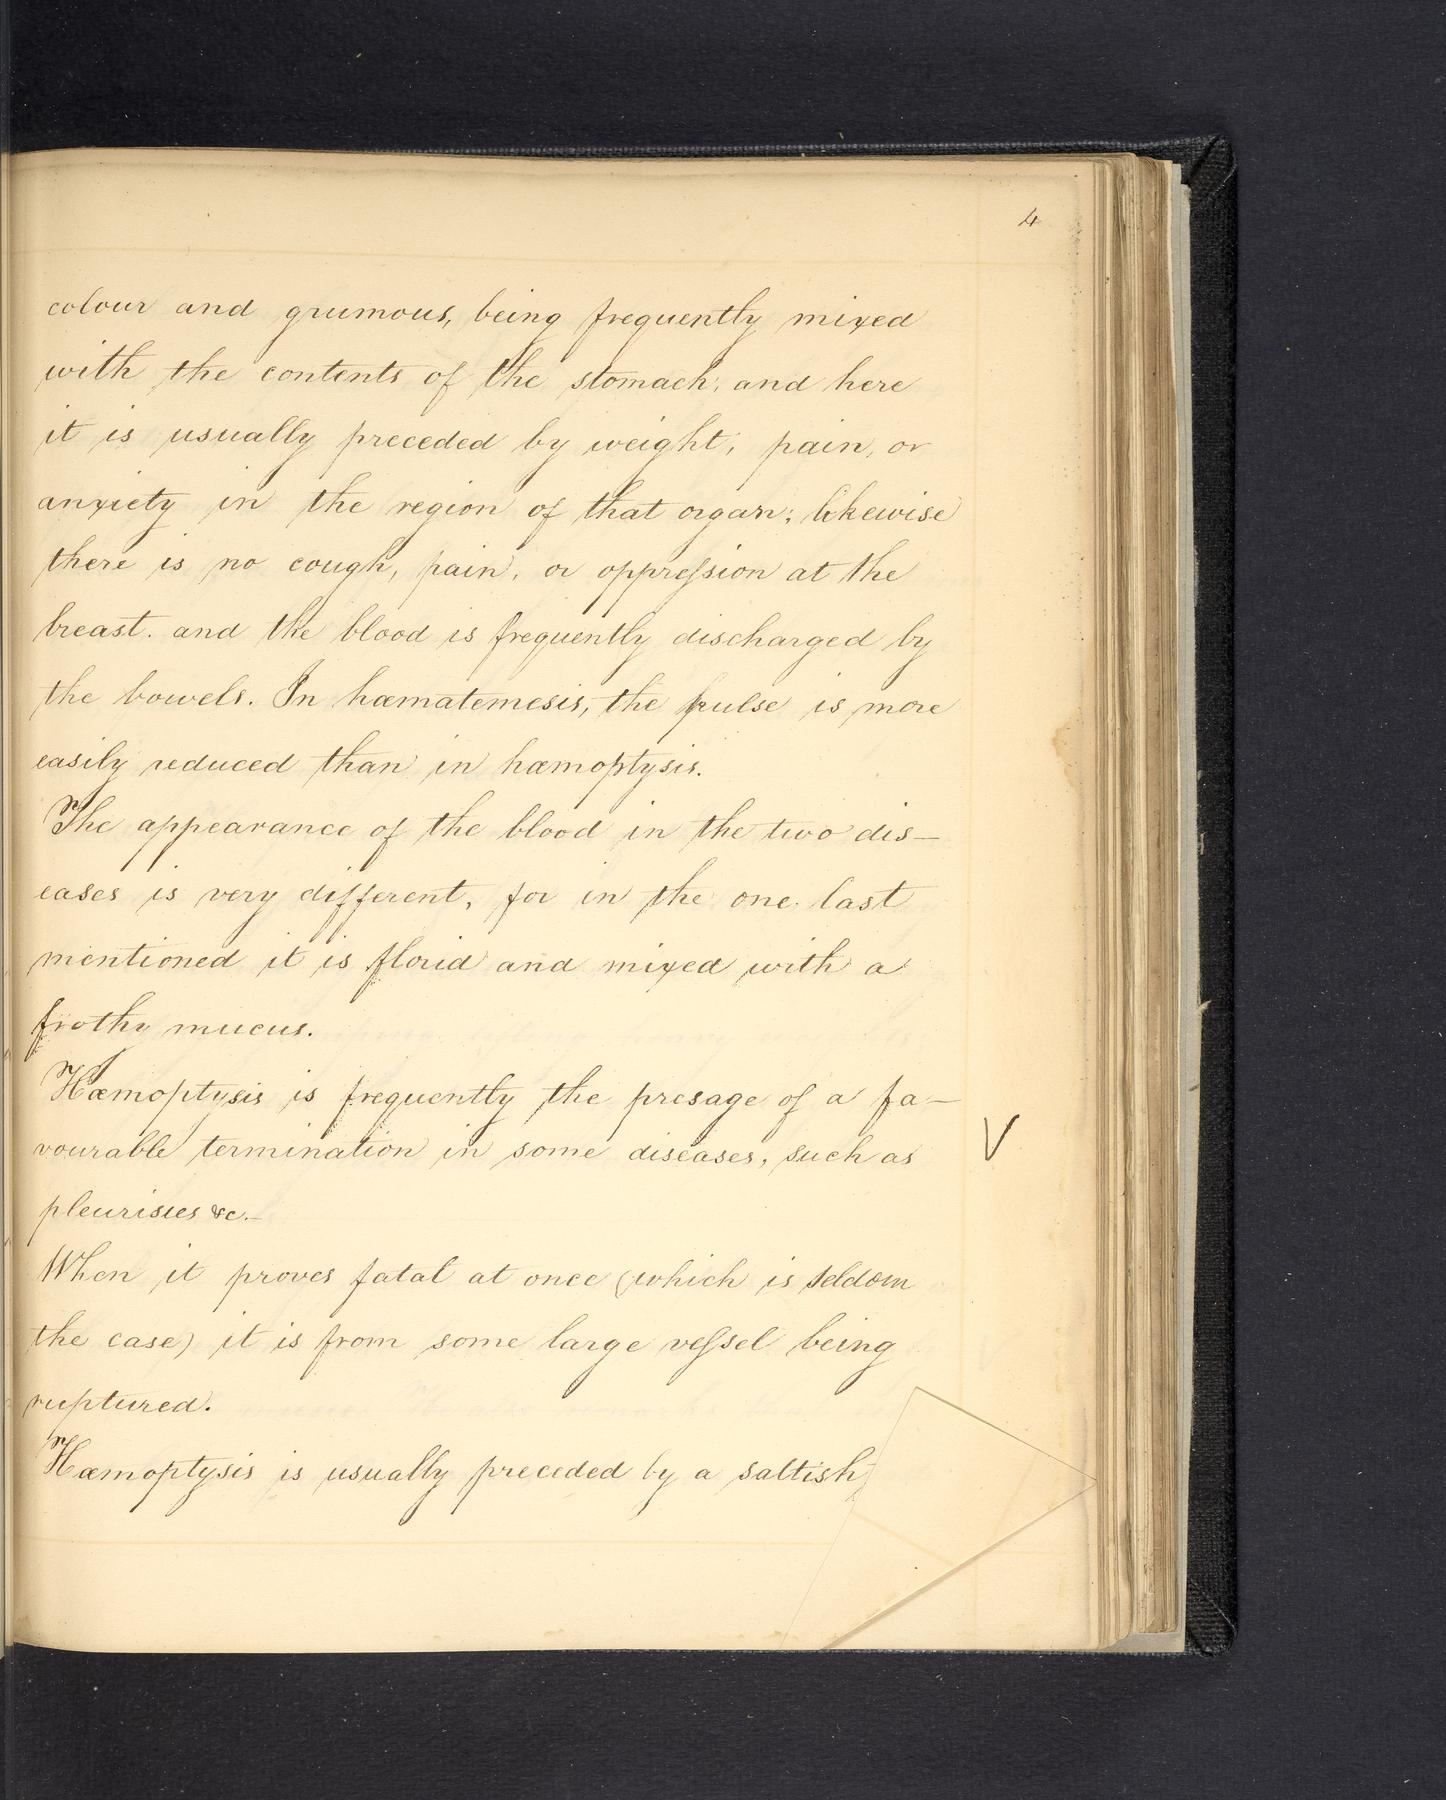 4
colour and grumous, being frequently mixed
with the contents of the stomach, and here
it is usually preceded by weight, pain, or
anxiety in the region of that organ; likewise
there is no cough, pain, or oppreſsion at the
breast. and the blood is frequently discharged by
the bowels. In hæmatemesis, the pulse is more
easily reduced than in hæmoptysis.
The appearance of the blood in the two dis—
eases is very different, for in the one last
mentioned it is florid and mixed with a
frothy mucus.
Hæmoptysis is frequently the presage of a fa—
vourable termination in some diseases, such as
V
pleurisies &c.—
When it proves fatal at once (which is seldom
the case) it is from some large veſsel being
ruptured.
Hæmoptysis is usually preceded by a saltish